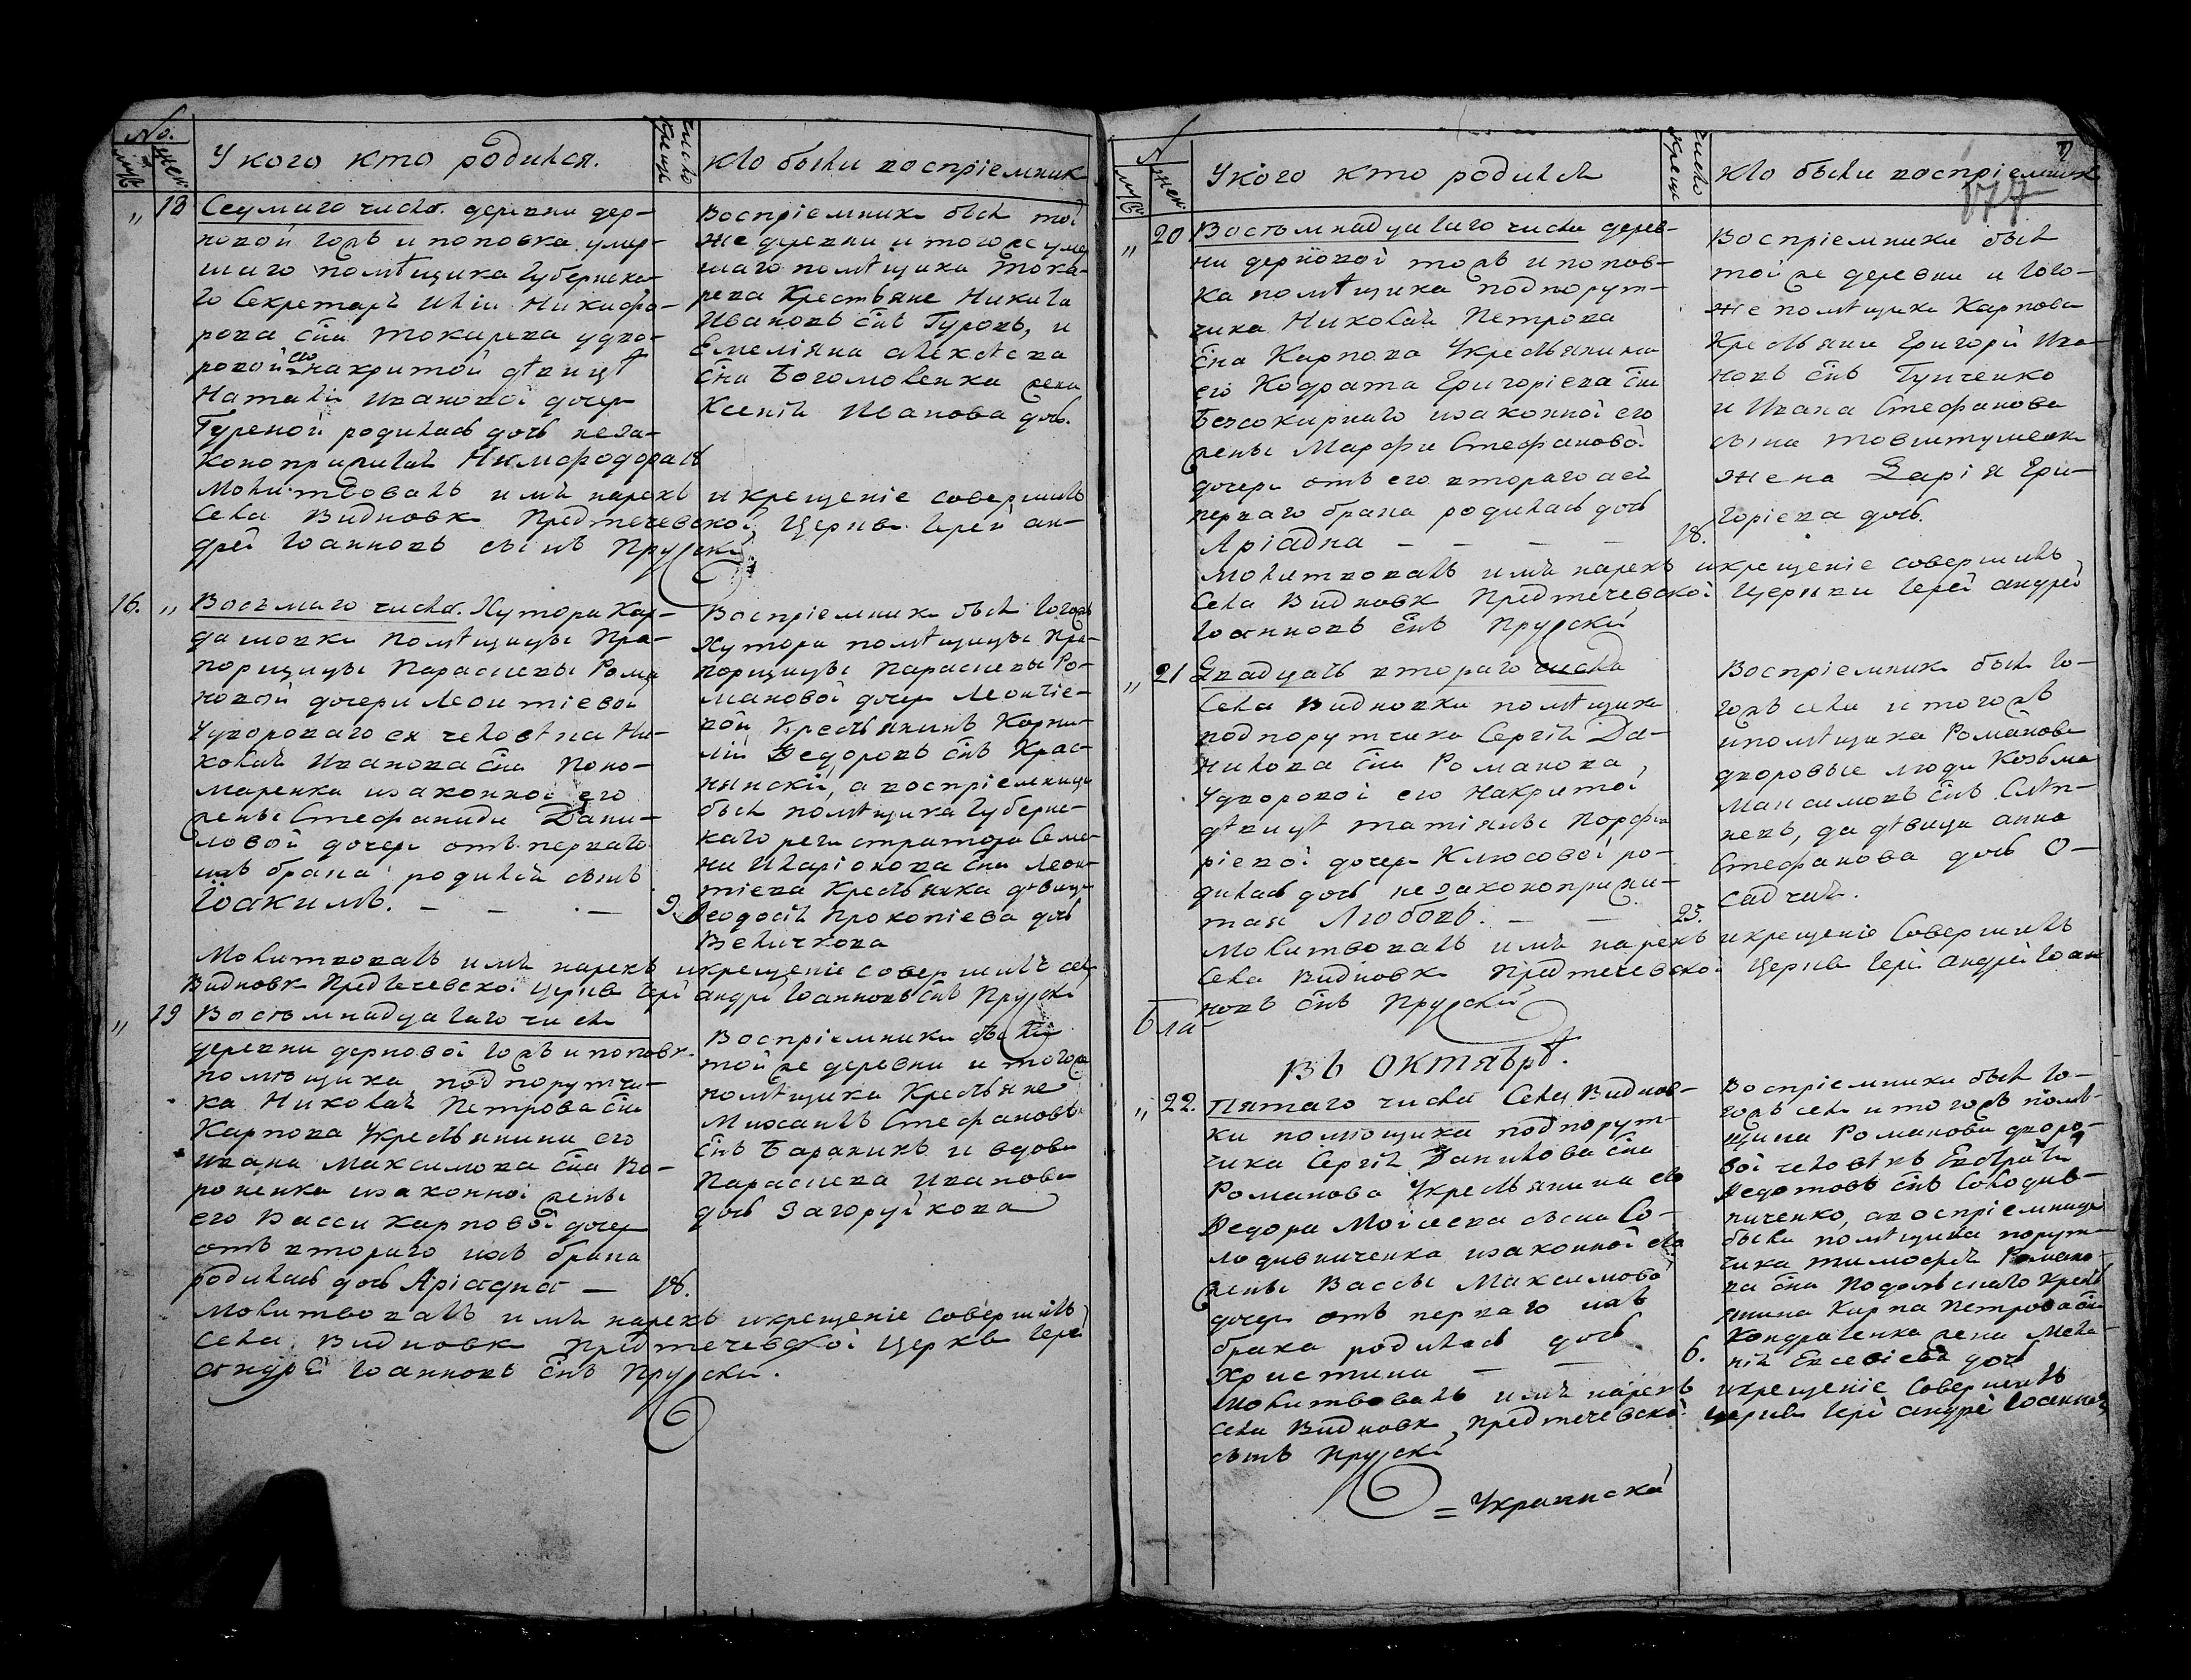 No.
муж
жен
У кого кто родился.
число
крещ
кто были воспріемник
" 18 Седмаго числа. деревни дер-
новой тожъ и поповка умер-
шаго помѣщика Губернска-
го Секретаря Иліи Никифо-
рова сна Токарева у дво-
ровой его накритой дѣвицѣ
Наталіи Ивановой дочери
Гуреной родилась дочь неза-
коноприжитая Нимфодора 18
Воспріемник был той
же деревни и того же умер
шаго помѣщика Тока-
рева Крестьяне Никита
Ивановъ снъ Гуровъ, и
Емеліяна Алексѣева
сна Богомоленка жена
Ксенія Иванова дочь.
Молитвовалъ имя нарекъ и крещеніе совершилъ
Села Видновк Предтечевской Церкви Іерей Ан-
дрей Іоанновъ сынъ Прускій
16. " Восьмаго числа. Хутора Кар-
дашовки помѣщицы Пра-
порщицы Параскевы Рома
новой дочери Леонтіевой
У двороваго ея человѣка Ни-
колая Иванова сна Поно-
маренка и законной его
жены Стефаниды Дани-
ловой дочери отъ перваго
ихъ брака родился сынъ
Іоакимъ. — — — 9.
Воспріемник был тогожъ
Хутора помѣщицы Пра-
порщицы Параскевы Ро-
мановой дочери Леонтіе-
вой Крестьянинъ Корни-
лій Ѳедоровъ снъ Крас-
нянскій, а воспріемница
был помѣщика Губернс-
каго регистратора Семе-
на Иларіонова сна Леон-
тіева Крестьянка дѣвица
Ѳеодосія Прокопіева дочь
Величкова
Молитвовалъ имя нарекъ и крещеніе совершилъ сел
Видновк Предтечевской Церкв Іерей Андрей Іоанновъ снъ Прускій
" 19 Восѣмнадцатаго числа
деревни дерновой тожъ и поповк.
помѣщика подпоручи-
ка Николая Петрова сна
Карпова У крестьянина его
Ивана Максимова сна Во-
роненка и законной жены
его Васси Карповой дочери
отъ втораго ихъ брака
родилась дочь Аріадна — 18.
Воспріемники были
той же деревни и тогож
помѣщика Крестьяне
Михаилъ Стефановъ
снъ Бараникъ и вдова
Параскева Иванова
дочь Загоруйкова
Молитвовалъ имя нарекъ и крещеніе совершилъ
Села Видновк Предтечевской Церкв Іерей
Андрей Іоанновъ снъ Прускій.
N
муж
жен
У кого кто родился
число
крещ
кто были воспріемник
177
" 20 Восѣмнадцатаго числа дерев-
ни дерновой тожъ и попов-
ка помѣщика подпорут-
чика Николая Петрова
сна Карпова У крестьянина
его Кодрата Григоріева сна
Безсокирнаго и законной его
жены Марфи Стефановой
дочери отъ его втораго а ей
перваго брака родилась дочь
Аріадна — — — — 18.
Воспріемники был
той же деревни и того-
же помѣщика Карпова
Крестьяни Григорій Ива-
новъ снъ Гунченко
и Ивана Стефанова
сына Товштуменк
жена Дарія Гри-
горіева дочь.
Молитвовалъ имя нарекъ и крещеніе совершилъ
Села Видновк Предтечевской Церкви Іерей Андрей
Іоанновъ снъ Прускій
" 21 Двадцать втораго числа
Села Видновки помѣщика
подпорутчика Сергія Да-
нилова сна Романова,
У дворовой его накритой
дѣвицѣ Татіяны Порфи
ріевой дочери Клюсовой ро-
дилась дочь незаконоприжи-
тая Любовь. — — 25.
Воспріемник был то-
гожъ села и тогожъ
и помѣщика Романова
дворовые люди Козьма
Максимовъ снъ
да дѣвица Анна
Стефанова дочь О-
садчая.
Молитвовалъ имя нарекъ и крещеніе совершилъ
Села Видновк Предтечевской Церкв Іерей Андрей Іоан
новъ снъ Прускій
Въ Октябрѣ.
" 22. Пятаго числа Села Виднов-
ки помѣщика подпорут-
чика Сергія Данилова сна
Романова У крестьянина его
Ѳедора Моісеева сына Со-
лодивниченка и законной его
жены Вассы Максимовой
дочери отъ перваго ихъ
брака родилась дочь
Христина — — 6.
Воспріемники был то-
гожъ села и тогожъ помѣ-
щика Романова дворо-
вой человѣкъ Евстратій
Ѳедотовъ снъ Солодив-
ниченко, а воспріемница
были помѣщика порут-
чика Тимофея Романо-
ва сна Подольскаго Крестья
янина Карпа Петрова сна
Кондратенка жена Мела-
нія Евсевіева дочь
Молитвовалъ имя нарекъ и крещеніе совершилъ
Села Видновк Предтечевской Церкв Іерей Андрей Іоанновъ
сынъ Прускій
= Украинскій